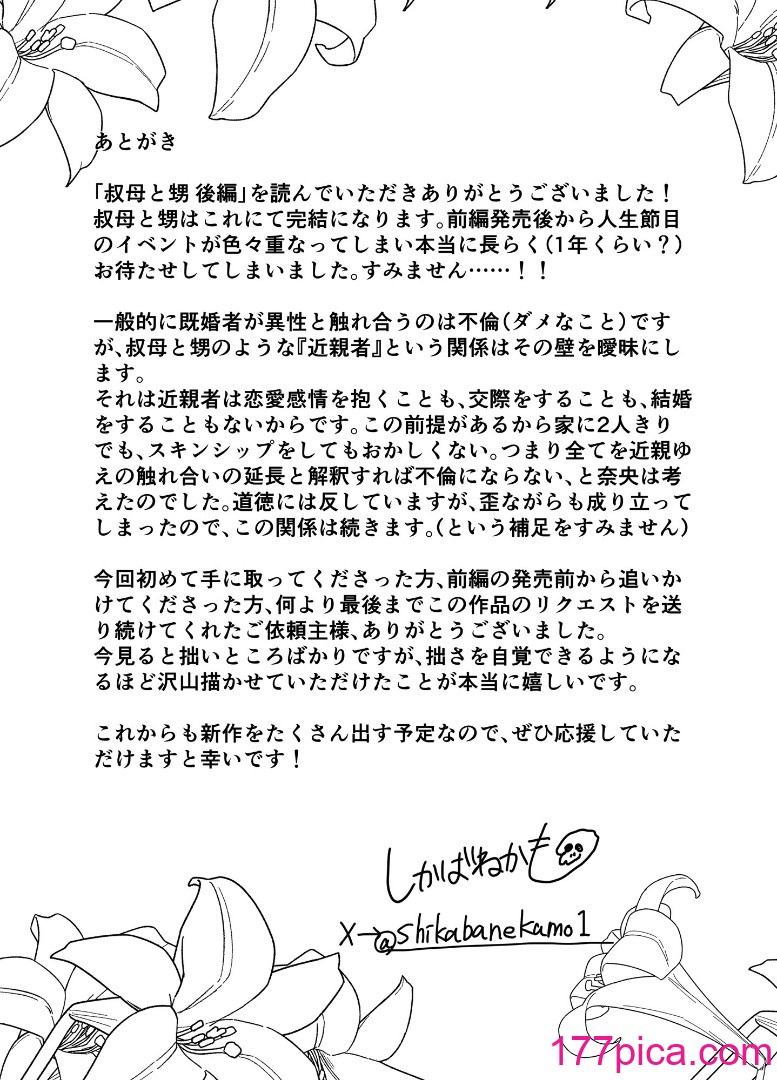 あとがき
「叔母と甥 後編」を読んでいただきありがとうございました！
叔母と甥はこれにて完結になります。前編発売後から人生節目
のイベントが色々重なってしまい本当に長らく(1年くらい？)
お待たせしてしまいました。すみません……！！
一般的に既婚者が異性と触れ合うのは不倫(ダメなこと)です
が、叔母と甥のような『近親者』という関係はその壁を曖昧にし
ます。
それは近親者は恋愛感情を抱くことも、交際をすることも、結婚
をすることもないからです。この前提があるから家に2人きり
でも、スキンシップをしてもおかしくない。つまり全てを近親ゆ
えの触れ合いの延長と解釈すれば不倫にならない、と奈央は考
えたのでした。道徳には反していますが、歪ながらも成り立って
しまったので、この関係は続きます。(という補足をすみません)
今回初めて手に取ってくださった方、前編の発売前から追いか
けてくださった方、何より最後までこの作品のリクエストを送
り続けてくれたご依頼主様、ありがとうございました。
今見ると拙いところばかりですが、拙さを自覚できるようにな
るほど沢山描かせていただけたことが本当に嬉しいです。
これからも新作をたくさん出す予定なので、ぜひ応援していた
だけますと幸いです！
しかばねかも
X→@shikabanekamo1
177pica.com